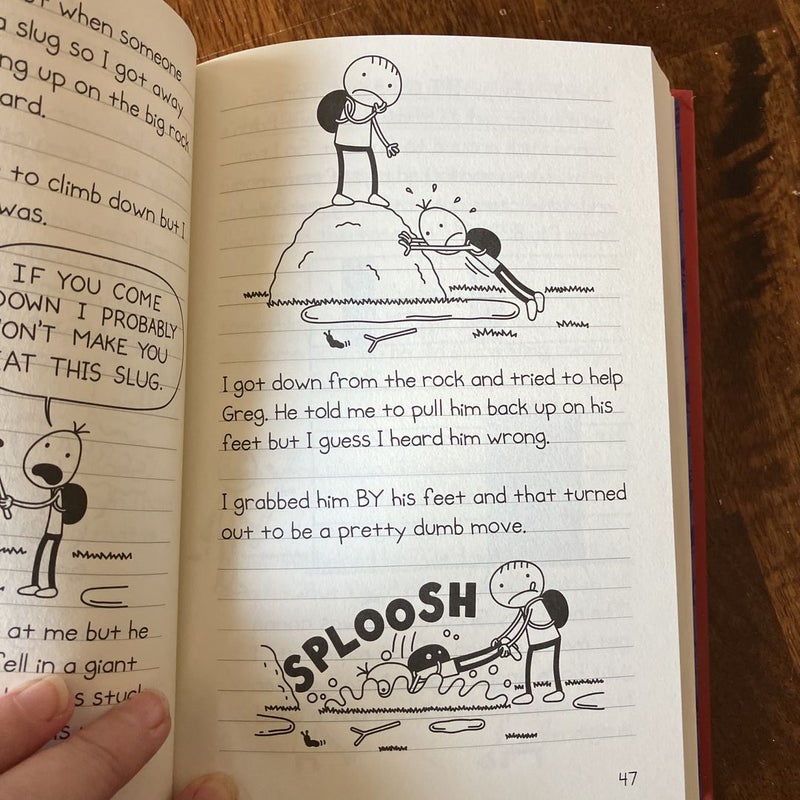 when someone
a slug so I got away
ng up on the big rock
ard.
to climb down but I
was.
IF YOU COME
DOWN I PROBABLY
ON'T MAKE YOU
EAT THIS SLUG.
at me but he
fell in a giant
s stuck
I got down from the rock and tried to help
Greg. He told me to pull him back up on his
feet but I guess I heard him wrong.
I grabbed him BY his feet and that turned
out to be a pretty dumb move.
SPLOOSH
47